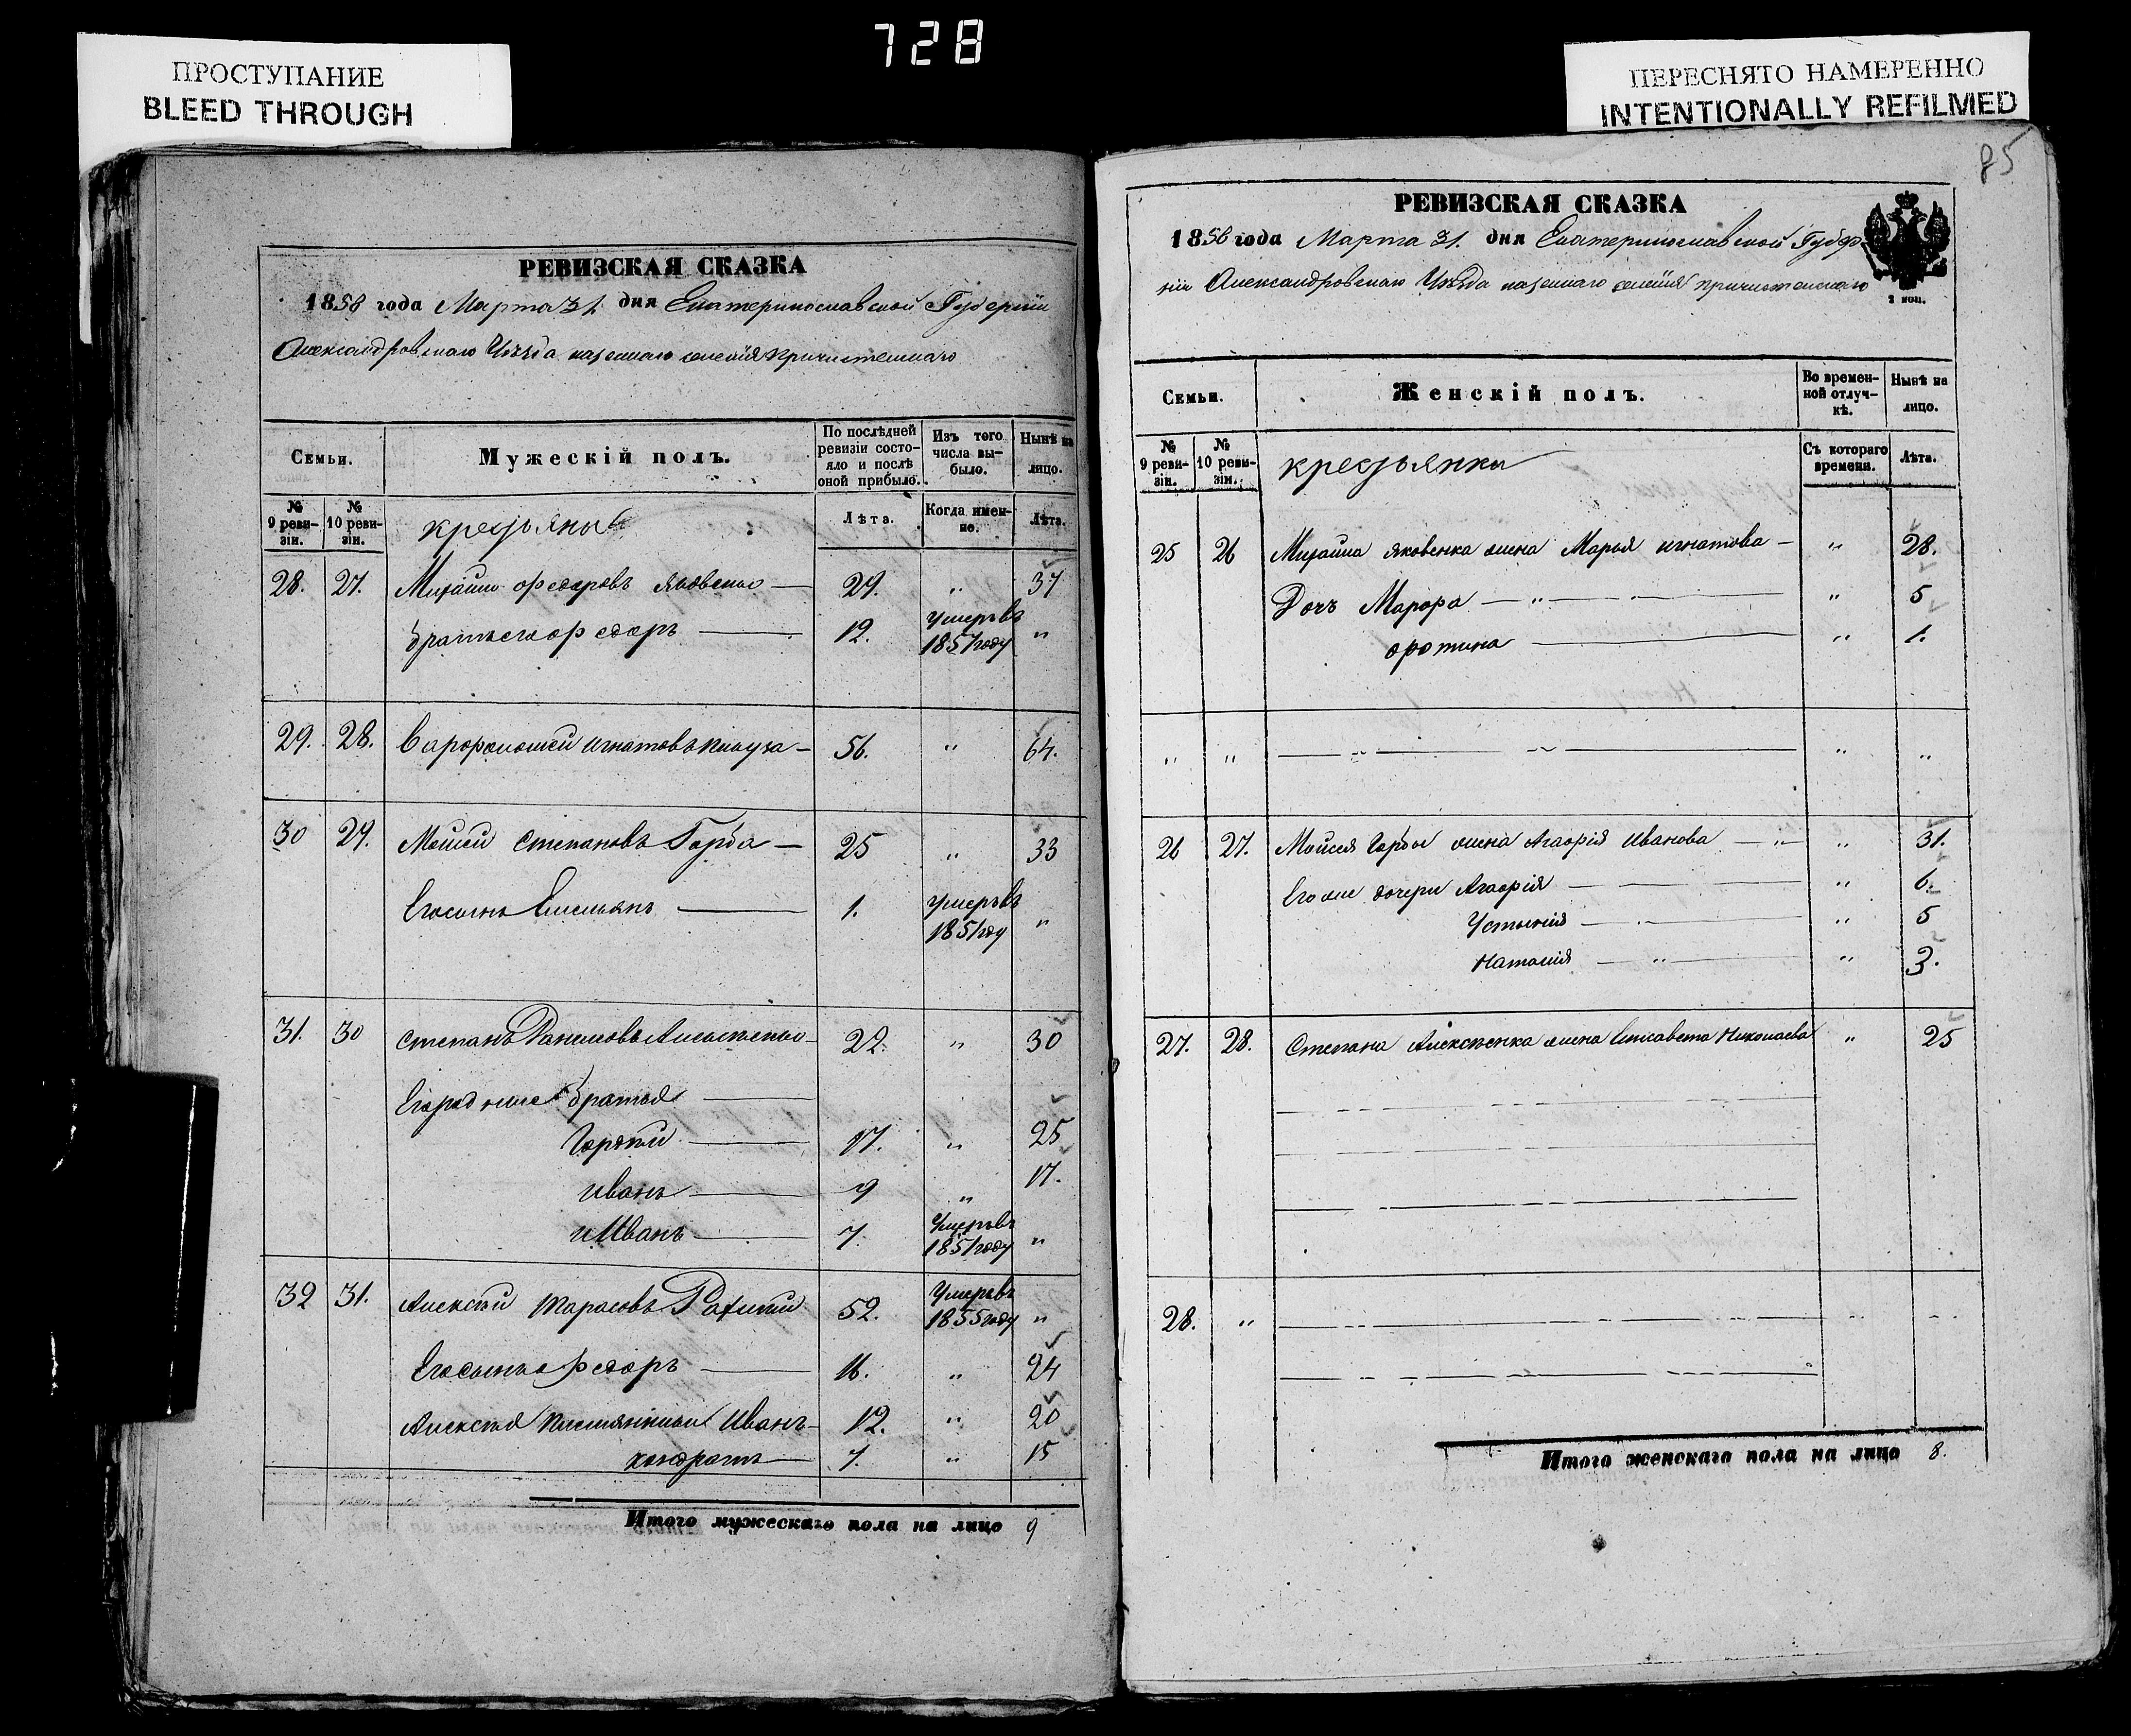 728
ПРОСТУПАНИЕ
BLEED THROUGH
ПЕРЕСНЯТО НАМЕРЕННО
INTENTIONALLY REFILMED
РЕВИЗСКАЯ СКАЗКА
1858 года Марта 31. дня Екатеринославской Губерніи
Александровскаго Уѣзда казеннаго селенія Пречистенскаго
Семьи.
Мужескій полъ.
По послѣдней ревизіи состояло и послѣ оной прибыло.
Изъ того числа выбыло.
Нынѣ на лицо.
№ 9 ревизіи.
№ 10 ревизіи.
крестьяне
Лѣта.
Когда именно.
Лѣта.
28. 27. Михайло Федоровъ Яковенко — 29. " 37
братъ его Федоръ — 12. умеръ въ 1851 году "
29. 28. Варфоломей Игнатовъ — 56. " 64.
30 29. Мойсей Степановъ Горба — 25 " 33
Его сынъ Емельянъ — 1. умеръ въ 1851 году "
31. 30 Степанъ Алексѣенко — 22. " 30
Его родные братья —
Гордѣй — 17. " 25
Иванъ — 9 " 17.
и Иванъ — 7. Умеръ въ 1851 году "
32 31. Алексѣй Тарасовъ 52. Умеръ въ 1855 году "
Его сынъ Федоръ — 16. " 24
Алексѣя племянники Иванъ — 12. " 20
Кондратъ — 7. " 15
Итого мужескаго пола на лицо 9
85
РЕВИЗСКАЯ СКАЗКА
1858 года Марта 31. дня Екатеринославской Губерніи
Александровскаго Уѣзда казеннаго селенія Пречистенскаго
2 коп.
Семьи.
Женскій полъ.
Во временной отлучкѣ.
Нынѣ на лицо.
№ 9 ревизіи.
№ 10 ревизіи.
крестьянки
Съ котораго времени.
Лѣта.
25 26 Михайла Яковенка жена Марья Игнатова — " 28.
Дочь Марфа — " — " 5
Фотина — " 1.
" " — " — " "
26 27. Мойсея Горбы жена Агафія Иванова — " — " 31.
Его же дочери Агафія — " 6.
Устинія — " 5
Наталія — " — " 3.
27. 28. Степана Алексѣенка жена Елисавета Николаева " 25
28. "
Итого женскаго пола на лицо 8.